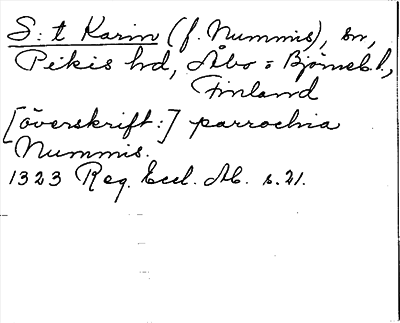 S:t Karin (f. Nummis), sn,
Pikis hd, Åbo = Björneb. l.,
Finland
[överskrift:] parrochia
Nummis.
1323 Reg. Eccl. Ab. s. 21.